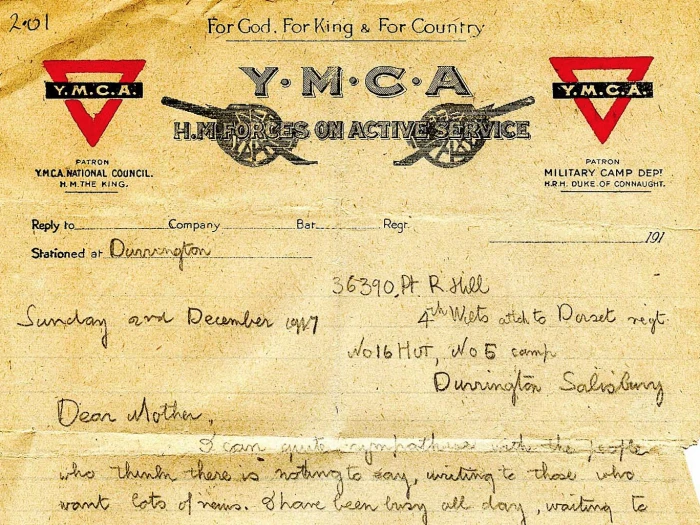 2.01
For God, For King & For Country
Y.M.C.A
H.M FORCES ON ACTIVE SERVICE
Y.M.C.A.
PATRON
Y.M.C.A. NATIONAL COUNCIL.
H.M. THE KING.
Y.M.C.A.
PATRON
MILITARY CAMP DEPT
H.R.H. DUKE OF CONNAUGHT.
Reply to Company Bat. Regt.
191
Stationed at Durrington
36390, Pt R Hill
Sunday 2nd December 1917
4th Wilts attch to Dorset regt.
No 16 HUT, No 5 camp
Durrington Salisbury
Dear Mother,
I can quite sympathise with the people
who think there is nothing to say, writing to those who
want lots of news. I have been busy all day, waiting to